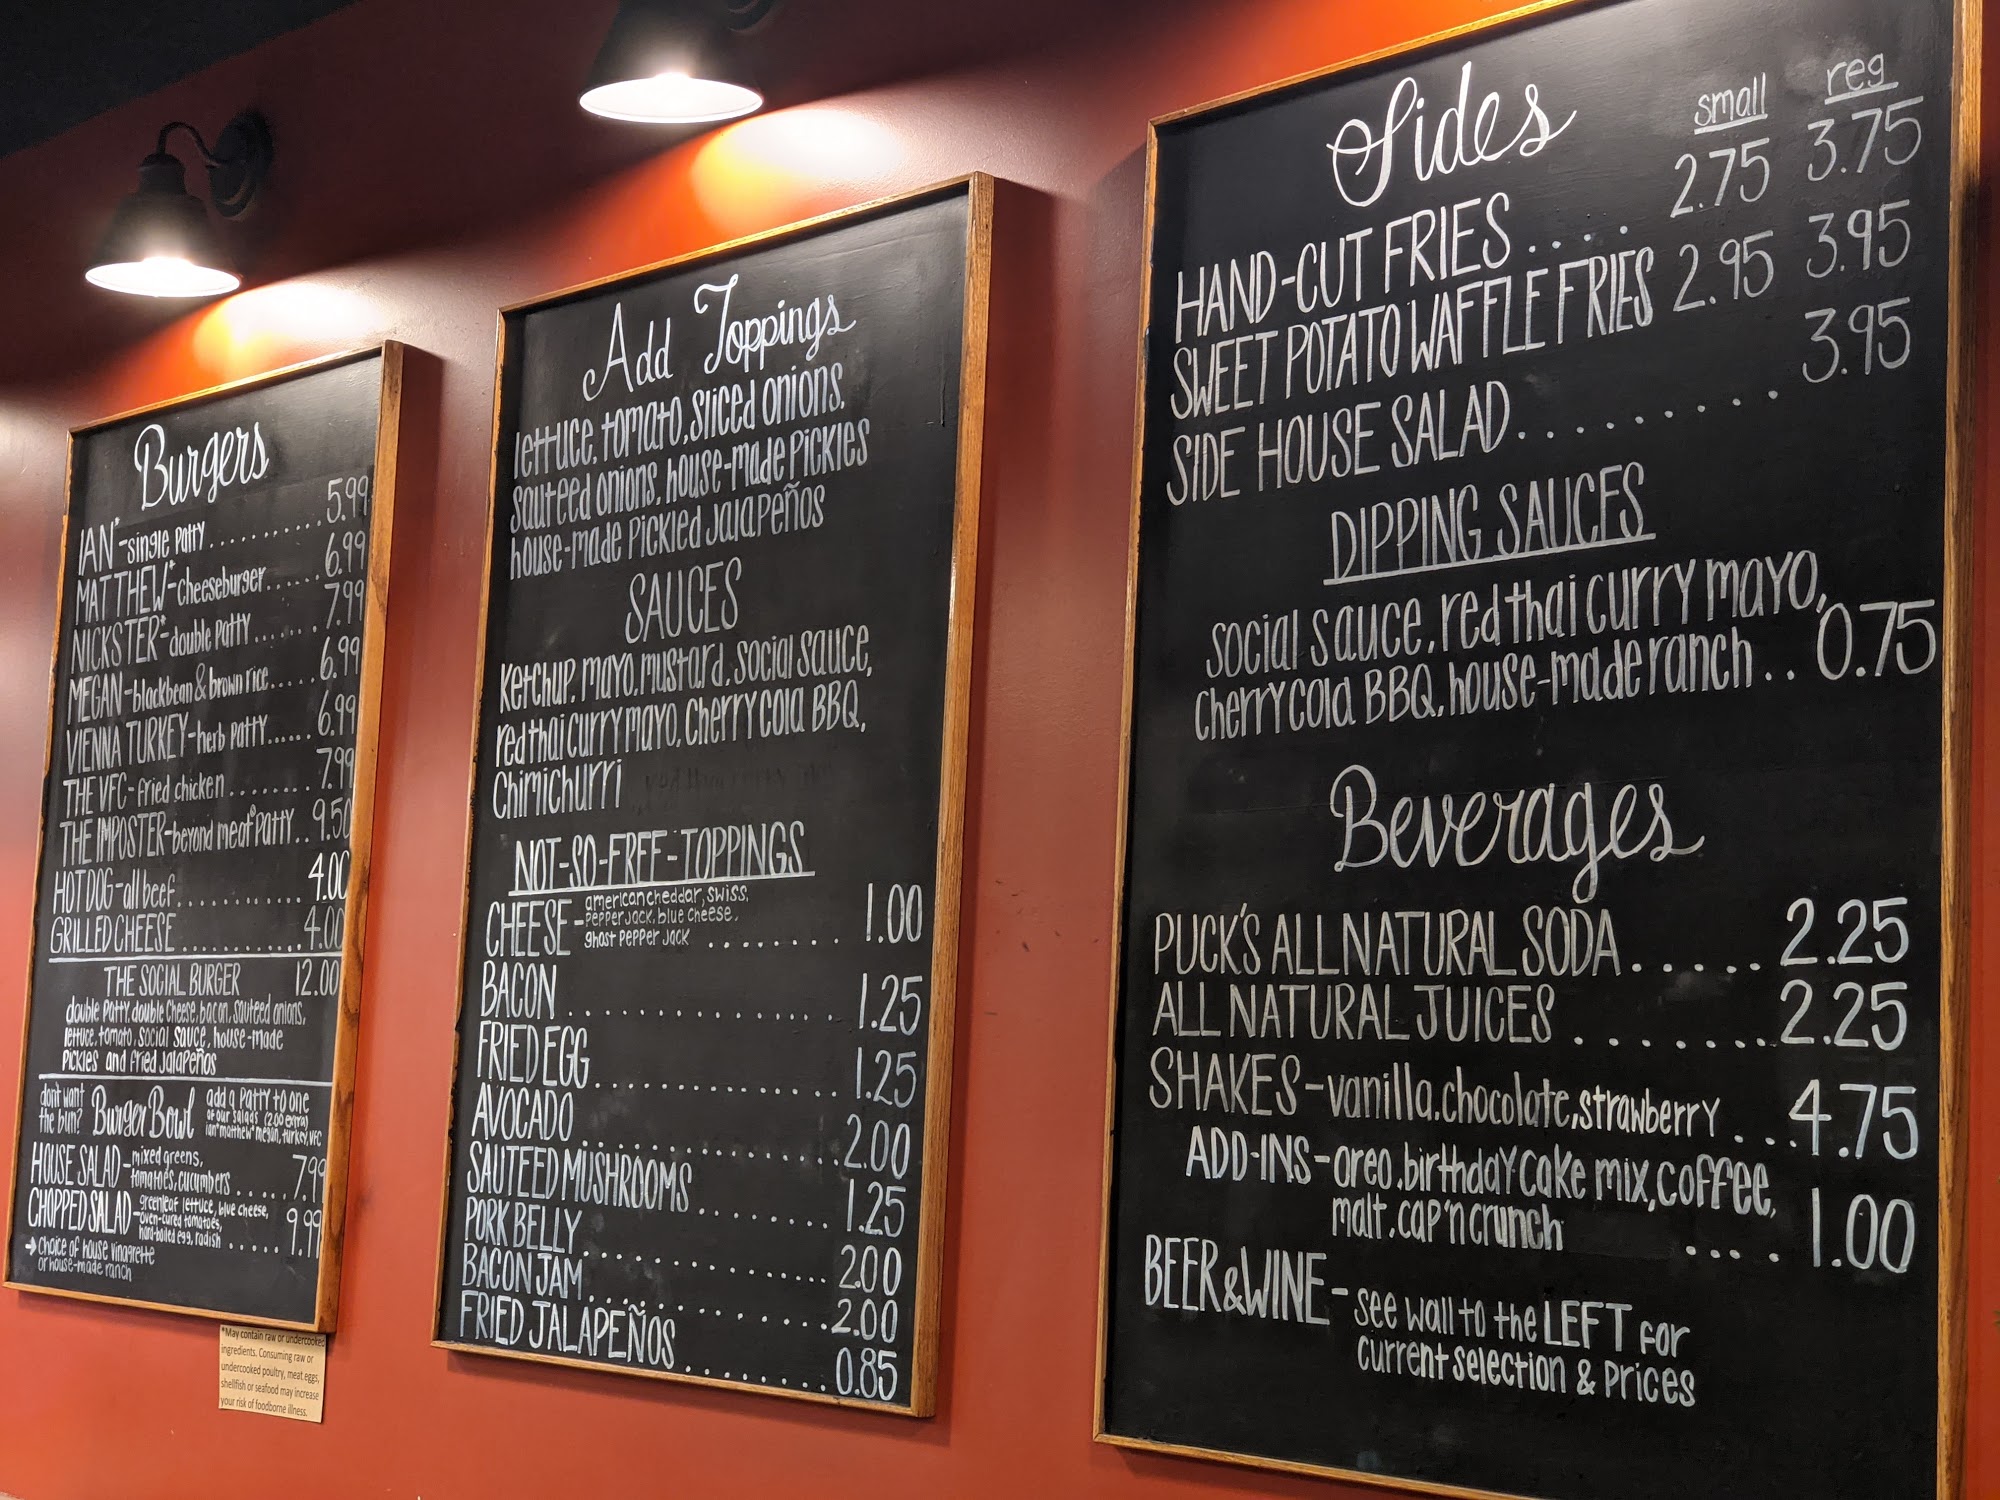 Burgers
IAN* - single patty .......... 5.99
MATTHEW* - cheeseburger ...... 6.99
NICKSTER* - double patty ....... 7.99
MEGAN - blackbean & brown rice ..... 6.99
VIENNA TURKEY - herb patty ...... 6.99
THE VFC - fried chicken ........ 7.99
THE IMPOSTER - beyond meat® patty .. 9.50
HOT DOG - all beef ............ 4.00
GRILLED CHEESE ............ 4.00
THE SOCIAL BURGER 12.00
double patty, double cheese, bacon, sauteed onions,
lettuce, tomato, social sauce, house-made
pickles and fried jalapeños
don't want the bun? Burger Bowl
add a patty to one
of our salads (2.00 extra)
ian* matthew* megan, turkey, VFC
HOUSE SALAD - mixed greens,
tomatoes, cucumbers ..... 7.99
CHOPPED SALAD - greenleaf lettuce, blue cheese,
oven-cured tomatoes,
hard-boiled egg, radish ..... 9.99
→ choice of house vinagrette
or house-made ranch
*May contain raw or undercooked
ingredients. Consuming raw or
undercooked poultry, meat eggs,
shellfish or seafood may increase
your risk of foodborne illness.
Add Toppings
lettuce, tomato, sliced onions,
sauteed onions, house-made pickles
house-made pickled jalapeños
SAUCES
ketchup, mayo, mustard, social sauce,
red thai curry mayo, cherry cola BBQ,
chimichurri
NOT-SO-FREE-TOPPINGS
CHEESE - american cheddar, swiss,
pepper jack, blue cheese,
ghost pepper jack ........ 1.00
BACON ................ 1.25
FRIED EGG .............. 1.25
AVOCADO ............... 2.00
SAUTEED MUSHROOMS ........ 1.25
PORK BELLY .............. 2.00
BACON JAM ............. 2.00
FRIED JALAPEÑOS ......... 0.85
Sides
small reg
HAND-CUT FRIES .... 2.75 3.75
SWEET POTATO WAFFLE FRIES 2.95 3.95
SIDE HOUSE SALAD ......... 3.95
DIPPING SAUCES
social sauce, red thai curry mayo,
cherry cola BBQ, house-made ranch .. 0.75
Beverages
PUCK'S ALL NATURAL SODA ..... 2.25
ALL NATURAL JUICES ........ 2.25
SHAKES - vanilla, chocolate, strawberry ... 4.75
ADD-INS - oreo, birthday cake mix, coffee,
malt, cap'n crunch .... 1.00
BEER & WINE - see wall to the LEFT for
current selection & prices